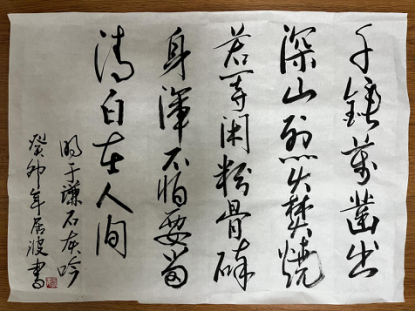 千锤萬凿出
深山烈火焚燒
若等闲粉骨碎
身渾不怕要留
清白在人间
明于谦石灰吟
癸卯年居波書